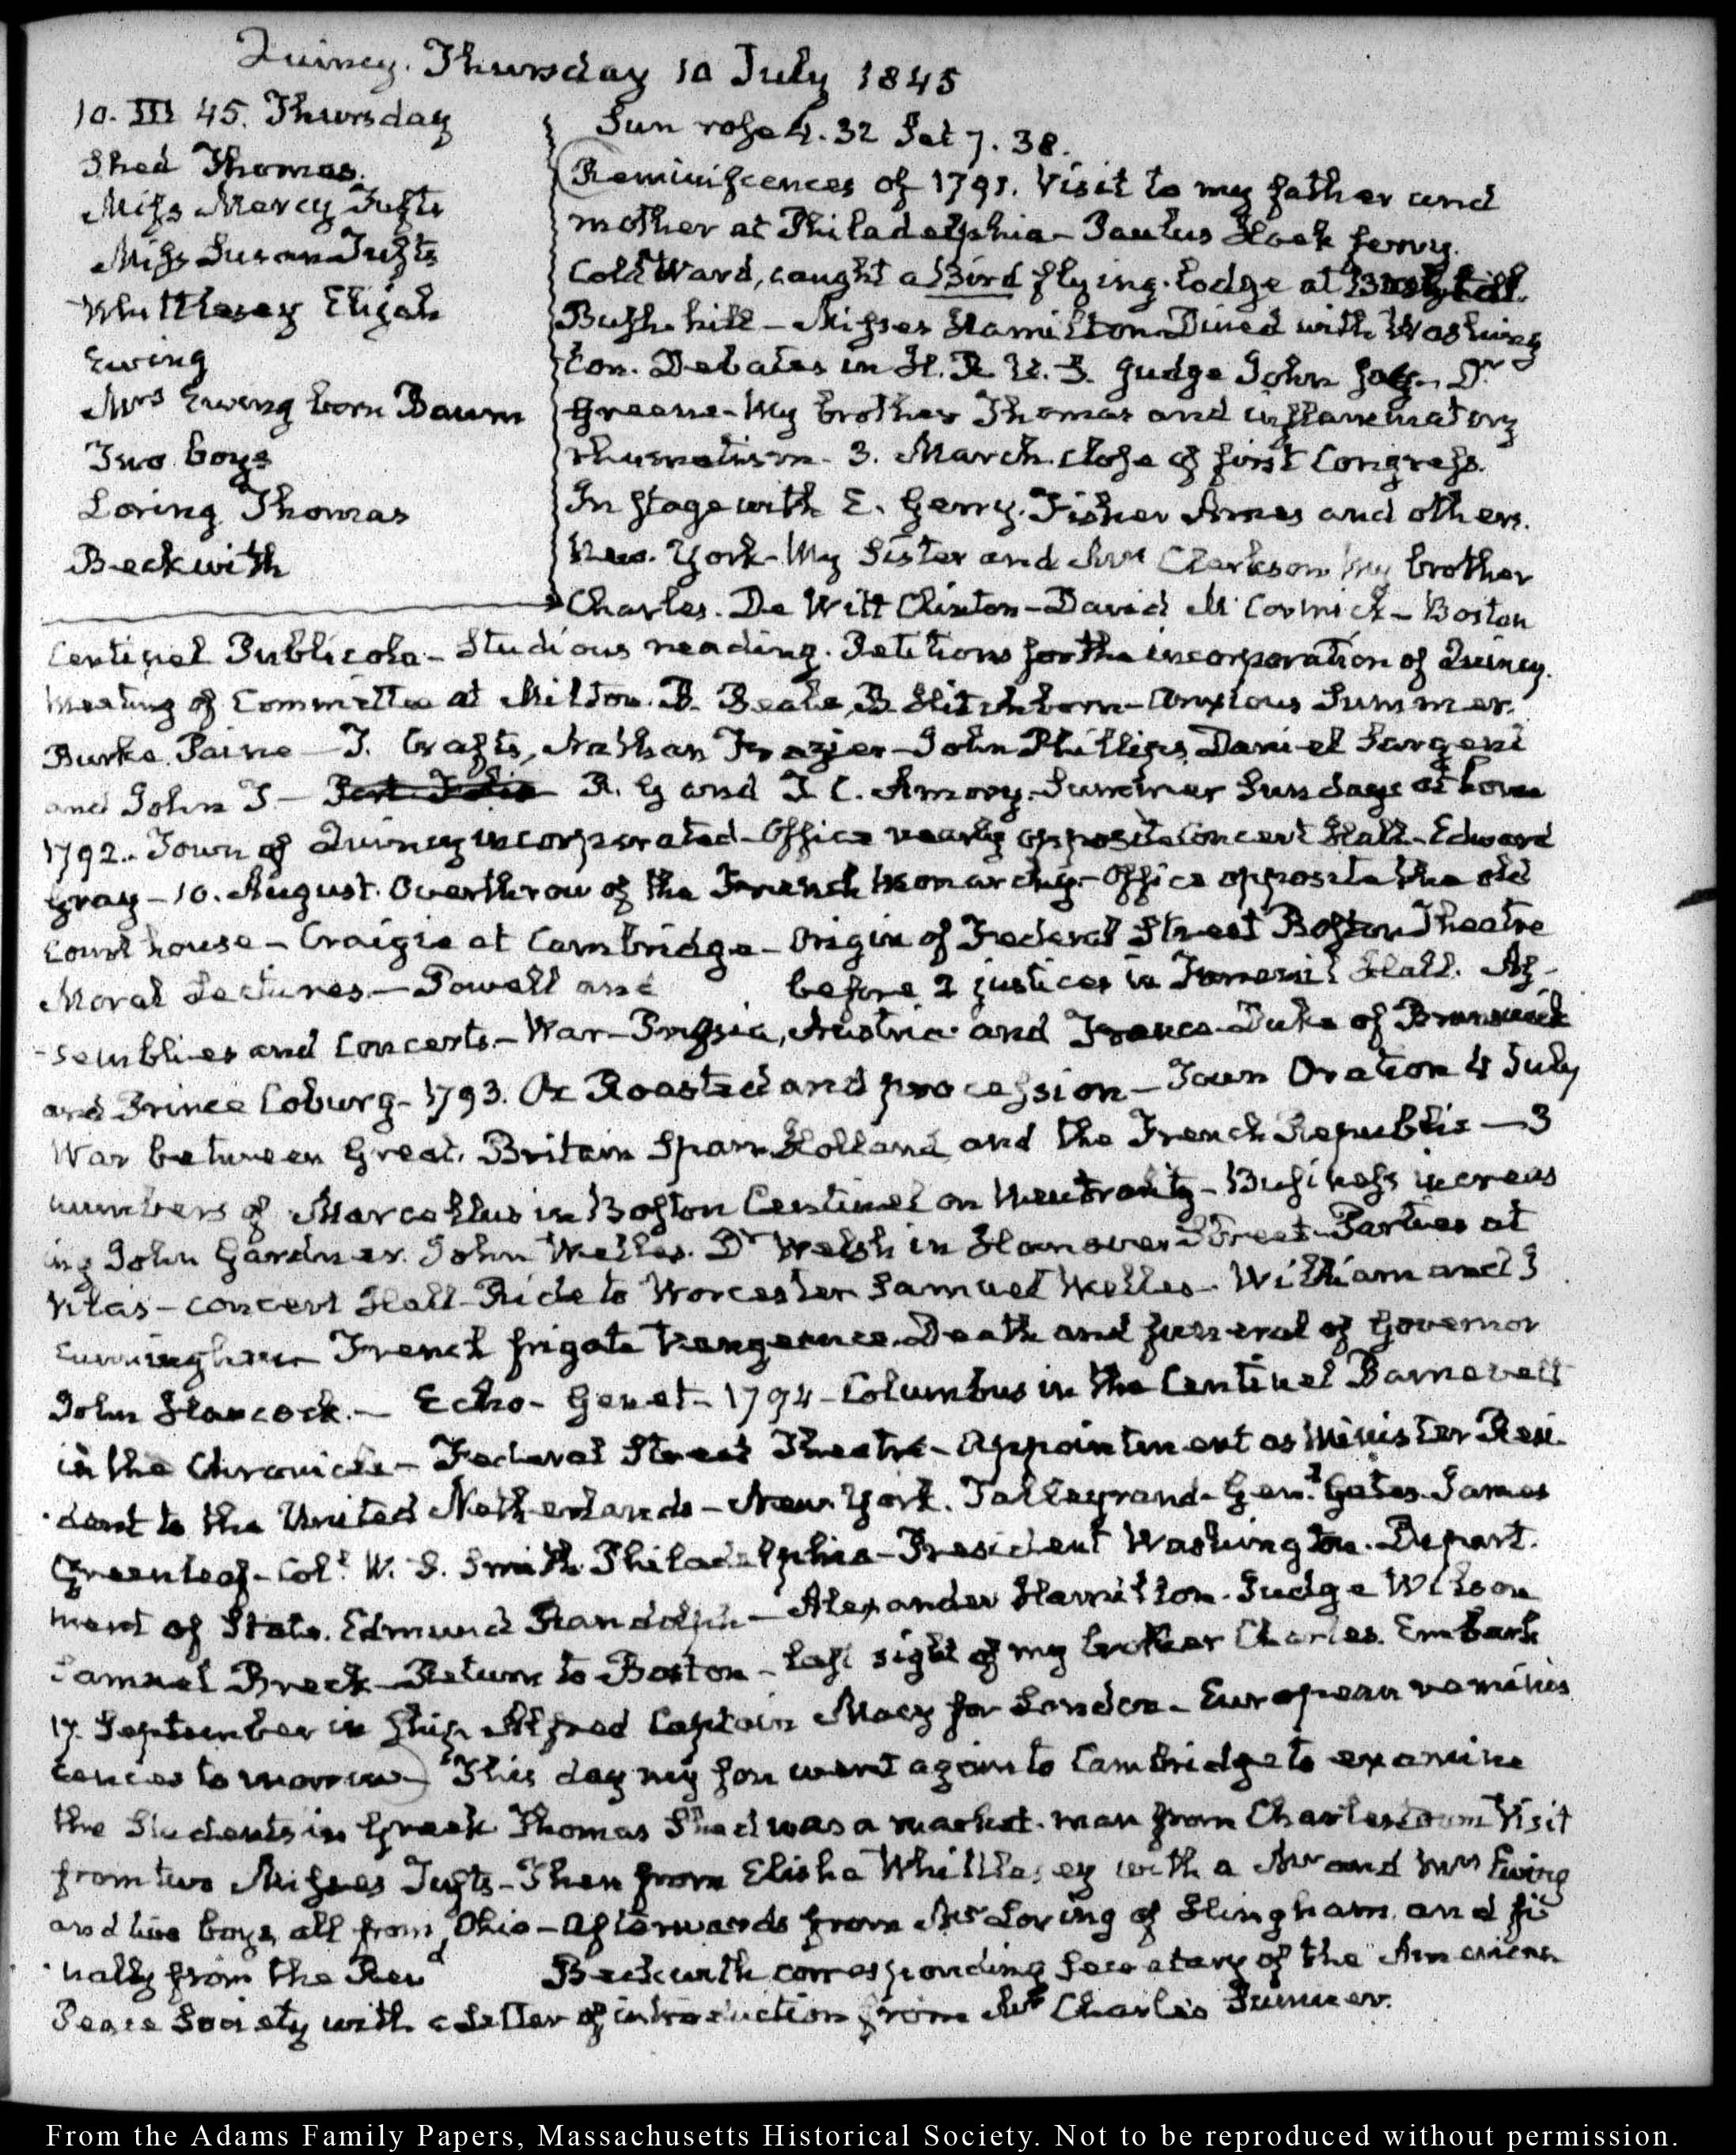 Quincy. Thursday 10 July 1845
10. III 45. Thursday
Shed Thomas.
Miſs Mercy Tufts
Miſs Susan Tufts
Whittlesey Elijah
Ewing
Mrs Ewing born Baum
Two boys
Loring Thomas
Beckwith
Sun roſe 4. 32 Set 7. 38.
(Reminiſcences of 1791. Visit to my father and
mother at Philadelphia – Paulus Hook ferry.
Cold Ward, caught a Bird flying. lodge at
Buſh hill – Miſses Hamilton Dined with Washing
ton. Debates in H. R. U. S. Judge John Jay. Dr
Greene – My brother Thomas and inflammatory
rhumatism. 3. March. cloſe of firſt Congreſs.
In ſtage with E. Gerry. Fisher Ames and others.
New. York – My Sister and Mrs Clarkson My brother
Charles. De Witt Clinton – David McCormick – Boston
Centinel Publicola – Studious reading. Petitions for the incorporation of Quincy.
Meeting of Committee at Milton. B. Beale, B. Hitchborn – Anxious Summer.
Burke Paine – T. Crafts, Nathan Frazier – John Phillips, Daniel Sargent
and John T – Port Folio R. G and T. C. Amory. Summer Sundays at home
1792. Town of Quincy incorporated – Office nearly opposite Concert Hall – Edward
Gray – 10. August. Overthrow of the French monarchy – Office opposite the old
Court house – Craigie at Cambridge – Origin of Federal Street Boſton Theatre
Moral Lectures – Powell and before 2 justices in Faneuil Hall. Aſ-
semblies and Concerts – War – Pruſsia, Austria and France Duke of Brunswick
and Prince Coburg – 1793. Ox Roasted and proceſsion – Town Oration 4 July
War between Great. Britain Spain Holland and the French Republic – 3
numbers of Marcellus in Boſton Centinel on Neutrality – Buſineſs increas
ing John Gardner. John Welles. Dr Welsh in Hanover Street Parties at
Vilas – concert Hall – Ride to Worcester Samuel Welles – William and J
Cunningham French frigate Vengeance Death and funeral of Governor
John Hancock. – Echo – Genet – 1794 – Columbus in the Centinel Barnevelt
in the Chronicle – Federal Street Theatre – Appointment as Minister Resi-
dent to the United Netherlands – New York. Talleyrand – Genl Gates James
Greenleaf – Coll W. S. Smith Philadelphia – President Washington. Depart-
ment of State. Edmund Randolph – Alexander Hamilton. Judge Wilson
Samuel Breck – Return to Boston – laſt sight of my brother Charles. Embark
17. September in ſhip Alfred Captain Macy for London – European reminis
cences to morrow) This day my ſon went again to Cambridge to examine
the Students in Greek Thomas Shed was a market-man from Charlestown Visit
from two Miſses Tufts – Then from Elisha Whittlesey with a Mr and Mrs Ewing
and two boys, all from Ohio – Afterwards from Mr Loring of Hingham and fi
nally from the Revd Beckwith correſponding ſecretary of the American
Peace Society with a Letter of introduction from Mr Charles Sumner.
From the Adams Family Papers, Massachusetts Historical Society. Not to be reproduced without permission.